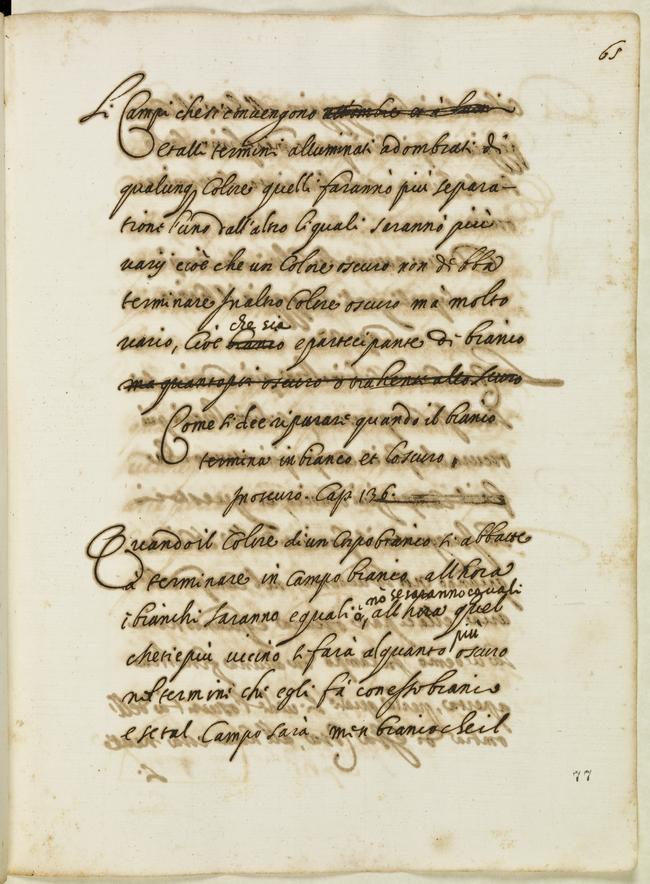 65
Li Campi che si convengono
et alli termini alluminati adombrati di
qualunq Colore quelli faranno più separa-
tione l'uno dall'altro li quali saranno più
varij cioè che un Colore oscuro non debba
terminare In altro Colore oscuro ma molto
che sia
vario, Cioè bianco e partecipante di bianco
ma quanto più oscuro o trahente allo scuro
Come si dee riparare quando il bianco
termina in bianco et l'oscuro,
In oscuro. Cap 136.
Quando il Colore di un Corpo bianco s'abbatte
a terminare in Campo bianco, all'hora
nō se saranno equali
i bianchi saranno equali, ò, all'hora quel
più
che ti è più vicino si farà alquanto oscuro
nel termine che egli fà con esso bianco
e se tal Campo sarà men bianco che il
77